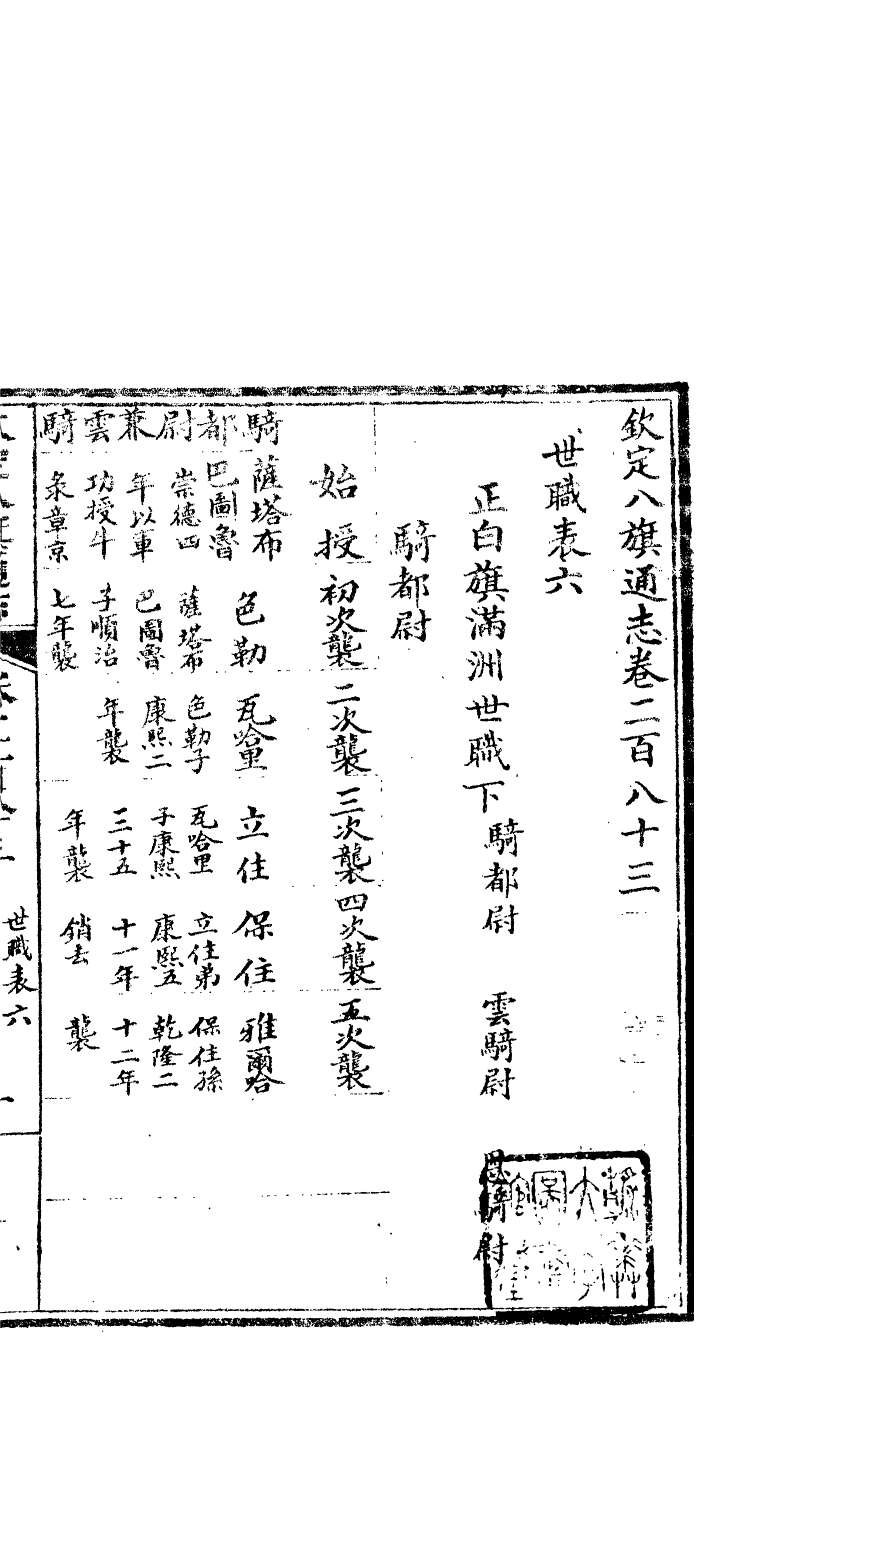 欽定八旗通志卷二百八十三
世職表六
正白旗滿洲世職下 騎都尉 雲騎尉 恩騎尉
騎都尉
始授
初次襲
二次襲
三次襲
四次襲
五次襲
騎都尉兼雲騎
薩塔布
巴圖魯
崇德四
年以軍
功授牛
彔章京
色勒
薩塔布
巴圖魯
子順治
七年襲
瓦哈里
色勒子
康熙二
年襲
立住
瓦哈里
子康熙
三十五
年襲
保住
立住弟
康熙五
十一年
銷去
雅爾哈
保住孫
乾隆二
十二年
襲
世職表六
一